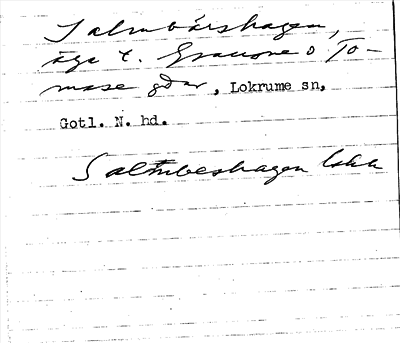 Salmbärshagen,
äga t. Grausne o To-
mase gdar, Lokrume sn,
Gotl. N. hd.
Salmbeshagen